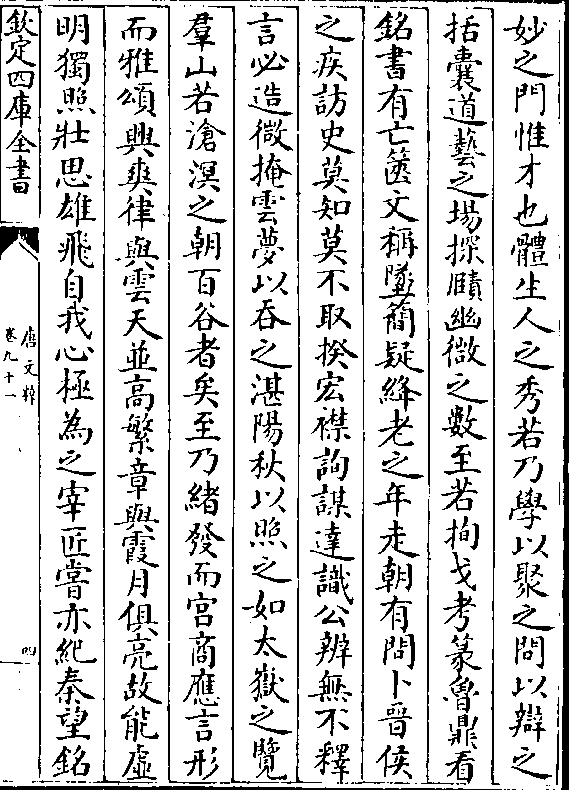 妙之門惟才也體生人之秀若乃學以聚之問以辯之
括囊道藝之場探賾幽微之數至若拘戈考篆魯鼎看
銘書有亡篋文稱墜簡疑絳老之年走朝有問卜晉侯
之疾訪史莫知莫不取揆宏襟詢謀達識公辨無不釋
言必造微掩雲夢以吞之湛陽秋以照之如太嶽之覽
羣山若滄溟之朝百谷者矣至乃緒發而宮商應言形
而雅頌興爽律與雲天並高繁章與霞月俱亮故能虛
明獨照壯思雄飛自我心極為之宰匠嘗亦紀秦望銘
欽定四庫全書
唐文粹
卷九十一
四